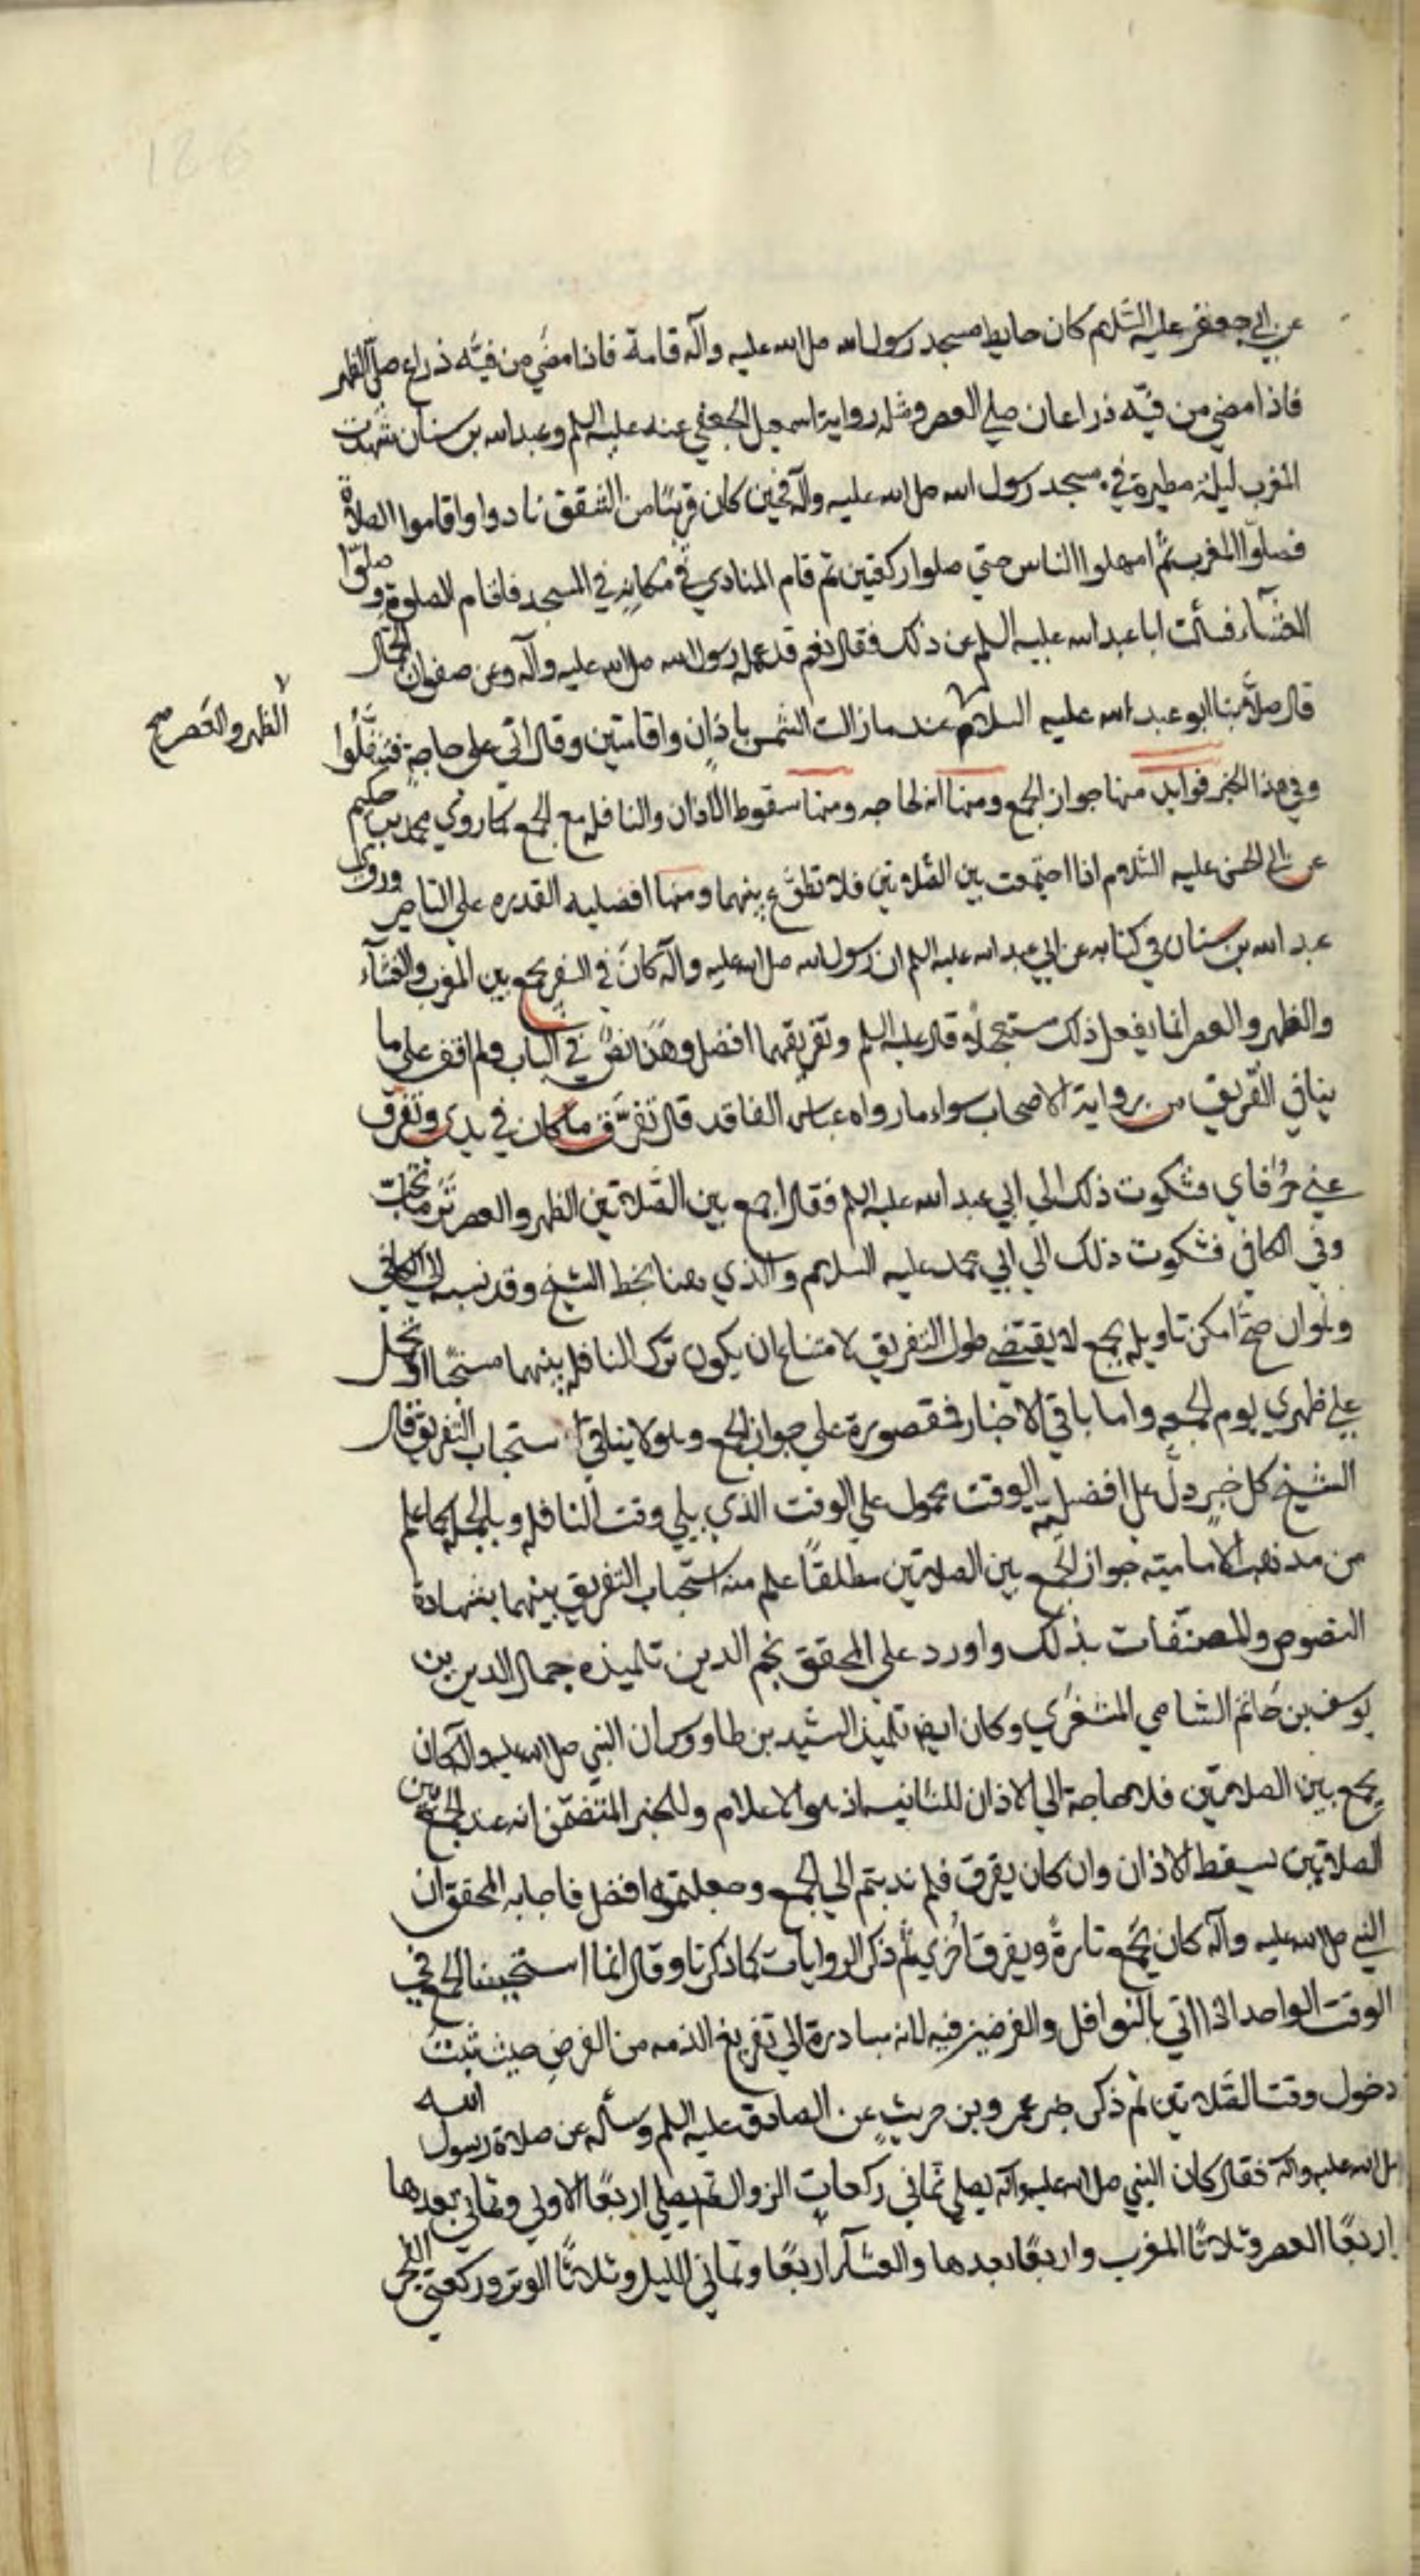 126
عن ابي جعفر عليه السّلام كان حايط مسجد رسول الله صلى الله عليه وآله قامة فاذا مضى من فيئه ذراع صلى الظهر
فاذا مضي من فيئه ذراعان صلي العصر ومثله رواية اسمعيل الجعفي عنه عليه السلم وعبد الله بن سنان شهدت
المغرب ليلة مطيرة في مسجد رسول الله صلى الله عليه وآله فحين كان قريبًا من الشفق نادوا واقاموا الصلاة
فصلوا المغرب ثم امهلوا الناس حتي صلوا ركعتين ثم قام المنادي في مكانه في المسجد فاقام الصلوة وصلوّا
العشآء فسألت ابا عبد الله عليه السلم عن ذلك فقال نعم قد عمله رسول الله صلى الله عليه وآله وعن صفوان الجمّال
قال صلّا بنا ابو عبد الله عليه السلام عند ما زالت الشمس باذان واقامتين وقال انّي على حاجةٍ فتنفَّلُوا
الظهر والعَصر صح
وفي هذا الخبر فوايد منها جواز الجمع ومنها انه لحاجه ومنها سقوط الاذان والنافله مع الجمع كما روي محمد بن حكيم
عن ابي الحسن عليه السّلام اذا اجتمعت بين الصّلاتين فلا تطوّع بينهما ومنها افضليه القدره علي التاخر وروى
عبد الله بن سنان في كتابه عن ابي عبد الله عليه السلم ان رسول الله صلى الله عليه وآله كان في السفر يجمع بين المغرب والعشآء
والظهر والعصر انما يفعل ذلك مستعجلًا وقال عليه السلم وتفريقهما افضل وهذا نصٌ في الباب ولم اقف على ما
ينافي التّفريق من رواية الاصحاب سواء ما رواه عباس الفاقد قال تفرَّق ما كان في يدي وتفرّق
عني حُرَفاي فشكوت ذلك الي ابي عبد الله عليه السلم فقال اجمع بين الصَّلاتين الظهر والعصر تَرَ ما تحبّ
وفي الكافي فشكوت ذلك الي ابي محمد عليه السلام والذي هنا بخط الشيخ وقد نسبه الي الكافي
ولو ان صحّا امكن تاويله بجمع لا يقتضي طول التفريق لامتناع ان يكون ترك النافلة بينهما مستحبًا او يحمل
علي ظهري يوم الجمعه واما باقي الاخبار فمقصورة علي جواز الجمع وهو لا ينافي استحباب التفريق قال
الشيخ كل خبرٍ دلّ على افضليّه الوقت محمول علي الوقت الذي يلي وقت النافله وبالجمله كما علم
من مذهب الاماميّه جواز الجمع بين الصلاتين مطلقًا علم منه استحباب التفريق بينهما بشهادة
النصوص والمصنّفات بذلك واورد علي المحقق نجم الدين تلميذه جمال الدين بن
يوسف بن حاتم الشامي المشغري وكان ايضا تلميذ السّيد بن طاووس ان النبي صلى الله عليه وآله كان
يجمع بين الصلاتين فلا حاجة الي الاذان للثانيه اذ هو الاعلام وللخبر المتضمّن انه عند الجمع بين
الصلاتين يسقط الاذان وان كان يفرق فلم ندبتم الي الجمع وجعلتموه افضل فاجابه المحقق ان
النبي صلى الله عليه وآله كان يجمع تارةً ويفرق اُخري ثم ذكر الروايات كما ذكرنا وقال انما استحببنا الجمع في
الوقت الواحد اذا اتي بالنوافل والفرضين فيه لانه مبادرة الي تفريغ الذمه من الفرض حيث ثبت
دخول وقت الصّلاتين ثم ذكر خبر عمرو بن حريث عن الصادق عليه السلم وسأله عن صلاة رسول الله
صلى الله عليه وآله فقال كان النبي صلى الله عليه وآله يصلي ثماني ركعات الزوال ثم يصلي اربعًا الاولي وثماني بعدها
اربعًا العصر وثلاثًا المغرب واربعًا بعدها والعشآء اربعًا وثماني الليل وثلاثًا الوتر وركعتي الفجر